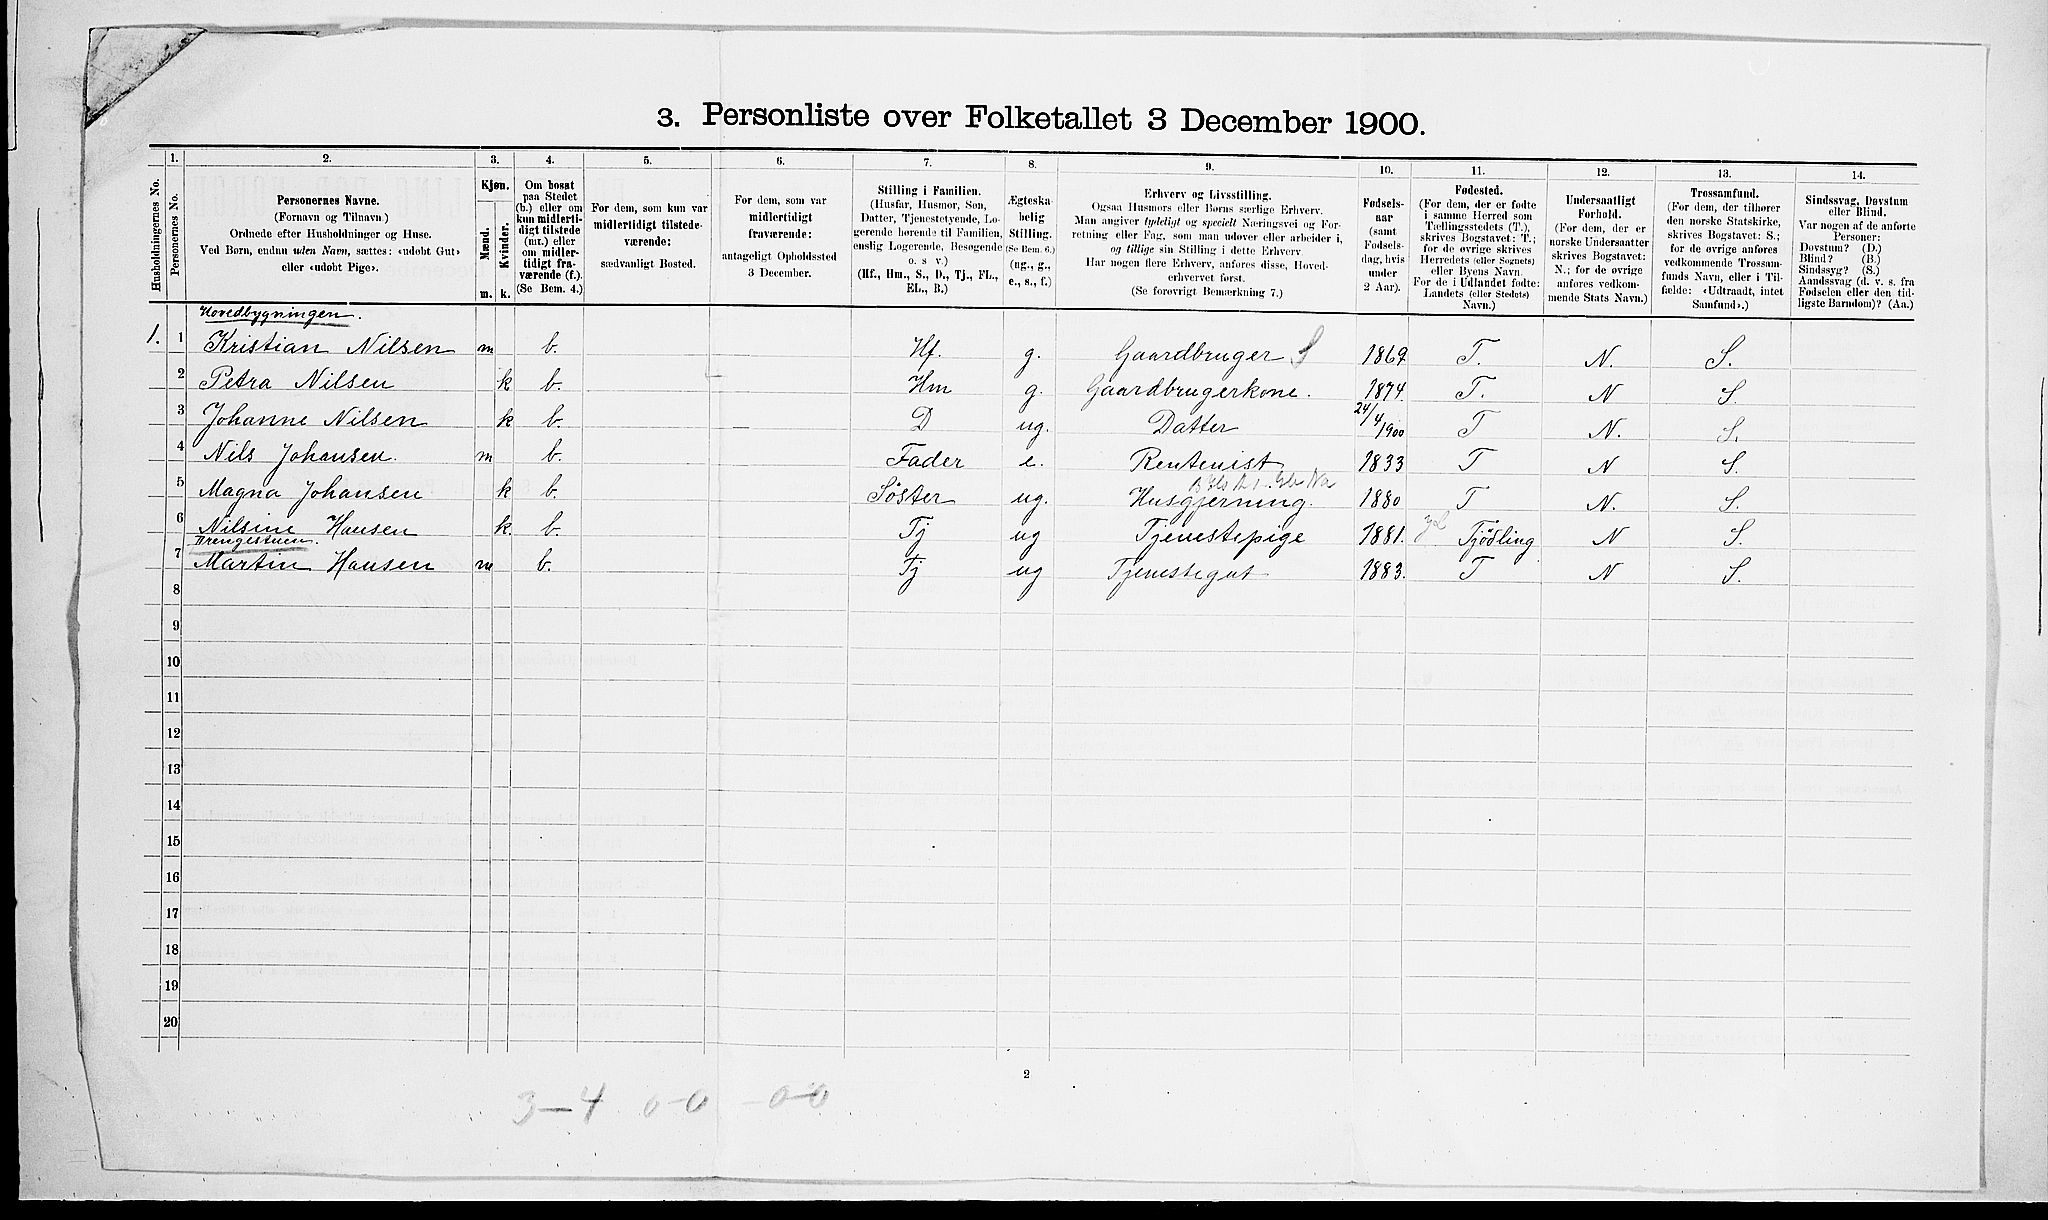 3. Personliste over Folketallet 3 December 1900.
Husholdningernes No.
1.
Personernes No.
2.
Personernes Navne.
(Fornavn og Tilnavn.)
Ordnede efter Husholdninger og Huse.
Ved Børn, endnu uden Navn, sættes: «udøbt Gut»
eller «udøbt Pige».
3.
Kjøn.
Mænd.
Kvinder.
m. k.
4.
Om bosat
paa Stedet
(b.) eller om
kun midlerti-
digt tilstede
(mt.) eller
om midler-
tidigt fra-
værende (f.).
(Se Bem. 4.)
5.
For dem, som kun var
midlertidigt tilstede-
værende:
sædvanligt Bosted.
6.
For dem, som var
midlertidigt
fraværende:
antageligt Opholdssted
3 December.
7.
Stilling i Familien.
(Husfar, Husmor, Søn,
Datter, Tjenestetyende, Lo-
gerende hørende til Familien,
enslig Logerende, Besøgende
o. s v.)
(Hf., Hm., S., D., Tj., FL.,
EL., B.)
8.
Ægteska-
belig
Stilling.
(Se Bem. 6.)
(ug., g.,
e., s., f.)
9.
Erhverv og Livsstilling.
Ogsaa Husmors eller Børns særlige Erhverv.
Man angiver tydeligt og specielt Næringsvei og For-
retning eller Fag, som man udøver eller arbeider i,
og tillige sin Stilling i dette Erhverv.
Har nogen flere Erhverv, anføres disse, Hoved-
erhvervet først.
(Se forøvrigt Bemærkning 7.)
10.
Fødsels-
aar
(samt
Fødsels-
dag, hvis
under
2 Aar).
11.
Fødested.
(For dem, der er fødte
i samme Herred som
Tællingsstedets (T.),
skrives Bogstavet: T.;
for de øvrige skrives
Herredets (eller Sognets)
eller Byens Navn.
For de i Udlandet fødte:
Landets (eller Stedets)
Navn.)
12.
Undersaatligt
Forhold.
(For dem, der er
norske Undersaatter
skrives Bogstavet:
N.; for de øvrige
anføres vedkom-
mende Stats Navn.)
13.
Trossamfund.
(For dem, der tilhører
den norske Statskirke,
skrives Bogstavet: S.;
for de øvrige anføres
vedkommende Trossam-
funds Navn, eller i Til-
fælde: «Udtraadt, intet
Samfund».)
14.
Sindssvag, Døvstum
eller Blind.
Var nogen af de anførte
Personer:
Døvstum? (D.)
Blind? (B.)
Sindssyg? (S.)
Aandssvag (d. v. s. fra
Fødselen eller den tid-
ligste Barndom)? (Aa.)
Hovedbygningen.
1. 1 Kristian Nilsen m b. Hf. g. Gaardbruger S 1869 T. N. S.
2 Petra Nilsen k b. Hm g. Gaardbrugerkone. 1874. T. N S.
3 Johanne Nilsen k b. D ug. Datter 24/4/1900 T N. S.
4 Nils Johansen. m b. Fader e. Rentenist 1833 T N S.
5 Magna Johansen k b. Søster ug. Husgjerning. 1880 T N. S.
6 Nilsine Hansen k. b. Tj ug Tjenestepige 1881. Tjødling N S.
Drengestuen.
7 Martin Hansen m b. Tj ug Tjenestegut 1883. T N S.
8
9
10
11
12
13
14
15
16
17
18
19
20
2
3-4 0-0 -0-0